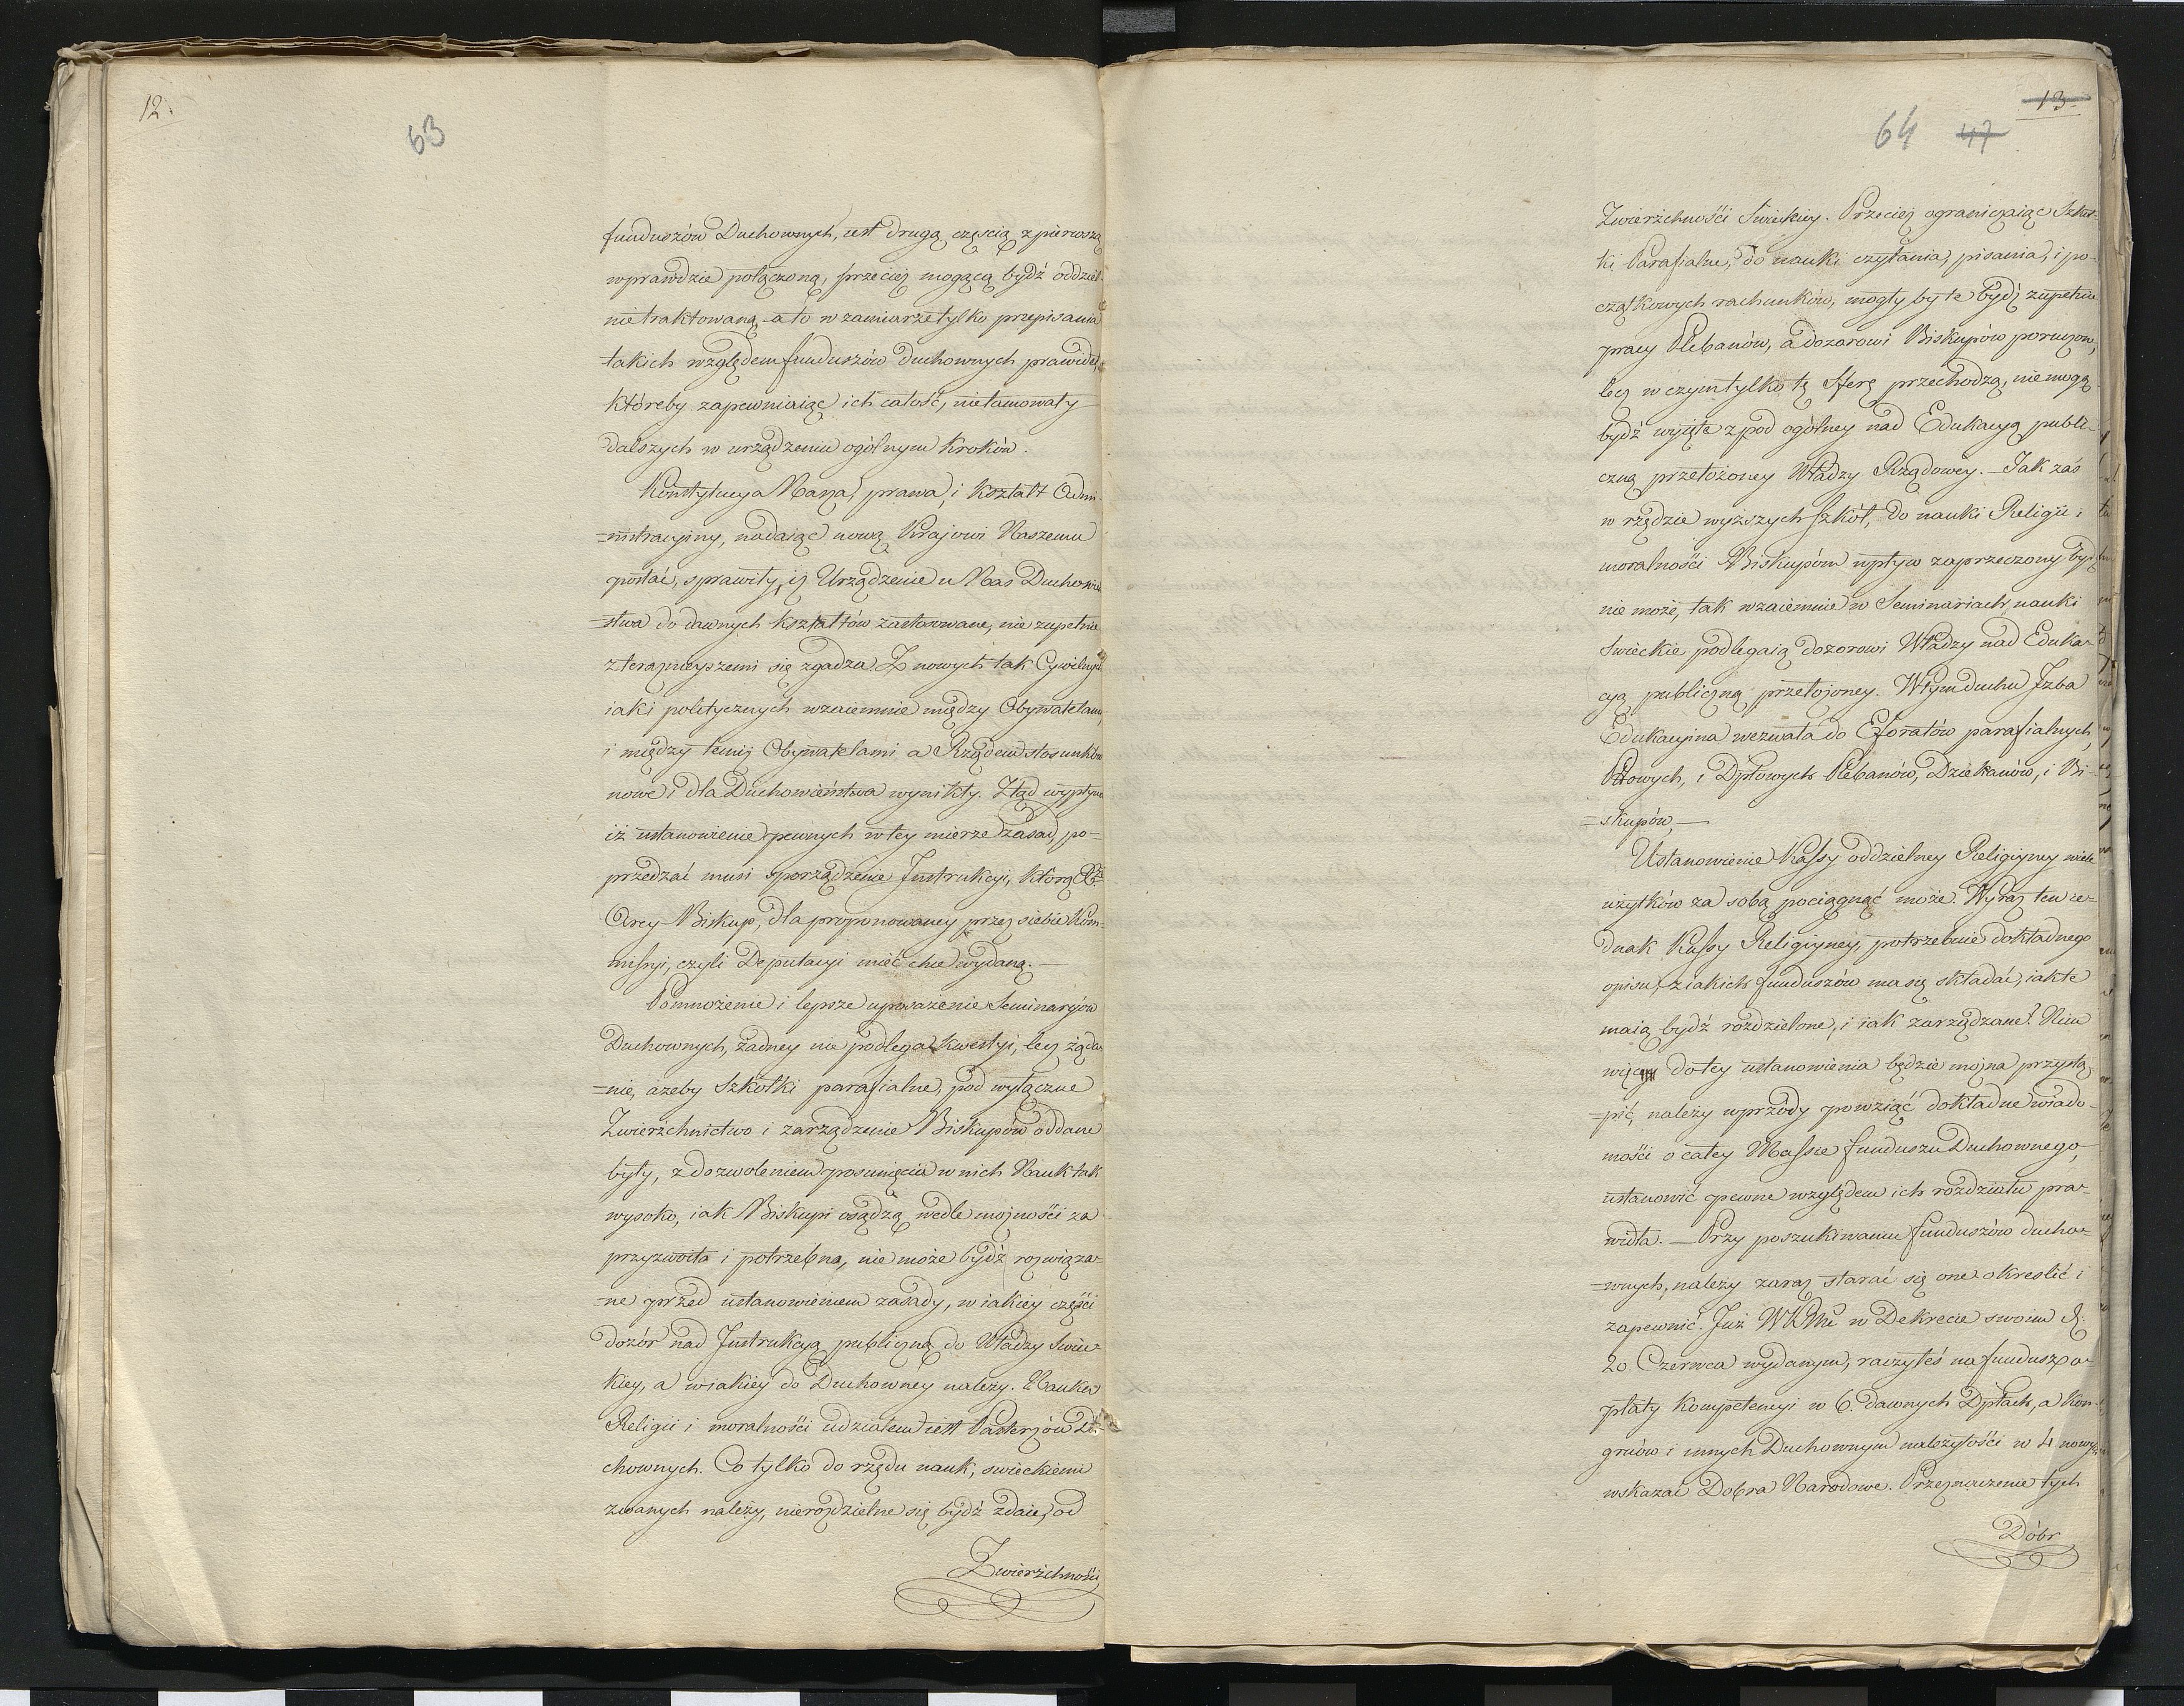 12.
63
funduszów Duchownych, iest drugą częścią z pierwszą
wprawdzie połączoną, przeciej mogącą bydź oddziel-
nie traktowaną, a to w zamiarze tylko przepisania
takich względem funduszów duchownych prawideł,
któreby zapewniaiąc ich całość, nietamowały
dalszych w urządzeniu ogólnym kroków.
Konstytucya Nasza, prawa, i kształt Admi
=nistracyiny, nadaiąc nową Krajowi Naszemu
postać, sprawiły, iż Urządzenie u Nas Duchowień
=stwa do dawnych kształtów zastosowane, nie zupełnie
z teraznieyszemi się zgadza. Z nowych tak Cywilnych
iak i politycznych wzaiemnie między Obywatelami,
i między temiż Obywatelami a Rządem stosunków
nowe i dla Duchowieństwa wynikły. Ztąd wypływa
iż ustanowienie pewnych w tey mierze zasad, po-
przedzać musi sporządzenie Instrukcyi, którą
Arcy-Biskup, dla proponowaney przez siebie Kom-
missyi, czyli Deputacyi mieć chce wydaną.—
Pomnożenie i lepsze uposażenie Seminaryów
Duchownych, żadney nie podlega kwestyi, lecz żąda
=nie, ażeby Szkółki parafialne, pod wyłączne
Zwierzchnictwo i zarządzenie Biskupów oddane
były, z dozwoleniem posunięcia w nich Nauk tak
wysoko, iak Biskupi osądzą wedle możności za
przyzwoita i potrzebna, nie może bydź rozwiąza=
=ne przed ustanowieniem zasady, w iakiey części
dozór nad Instrukcyą publiczną do Władzy Swiec=
kiey, a w iakiey do Duchowney należy. Nauka
Religii i moralności udziałem iest Pasterzów Du
chownych. Co tylko do rzędu nauk, swieckiemi
zwanych należy, nierozdzielne się bydź zdaie, od
Zwierzchności
13
64 47
Zwierzchności Swieckiey. Przeciej ograniczaiąc Szkół-
ki Parafialne, do nauki czytania, pisania, i po-
czątkowych rachunków, mogły by te bydź zupełnie
pracy Plebanów, a dozorowi Biskupów poruczone,
lecz w czym tylko tę Sferę przechodzą, nie mogą
bydź wyięte z pod ogólney nad Edukacyą publi-
czną przełożoney Władzy Rządowey.— Jak zaś
w rzędzie wyższych Szkół, do nauki Religii i
moralności Biskupóm wpływ zaprzeczony bydź
nie może, tak wzaiemnie w Seminariach nauki
Swieckie podlegaią dozorowi Władzy nad Eduka=
cyą publiczną przełożoney. W tym duchu Izba
Edukacyina wezwała do Eforatów parafialnych,
Pttowych, i Dptowych Plebanów, Dziekanów, i Bi-
=skupów,—
Ustanowienie Kassy oddzielney Religiyney wiele
użytków za sobą pociągnąć może. Wyraz ten ie=
dnak Kassy Religiyney, potrzebuie dokładnego
opisu, z iakich funduszów ma się składać, iak te
maią bydź rozdzielone, i iak zarządzane? Nim
więc do tey ustanowienia będzie można przystą
=pić, należy uprzódy powziąć dokładne wiado-
mości o całey Massie funduszu Duchownego,
ustanowić pewne względem ich rozdziału pra=
widła.— Przy poszukiwaniu funduszów ducho=
=wnych, należy zaraz starać się one okreslić i
zapewnić. Już WKMć w Dekrecie swoim d.
20. Czerwca wydanym, raczyłeś na fundusz o=
płaty Kompetencyi w 6. dawnych Dptach, a Kon-
gruów i innych Duchownym należytości w 4 nowych
wskazać Dobra Narodowe. Przeznaczenie tych
Dóbr